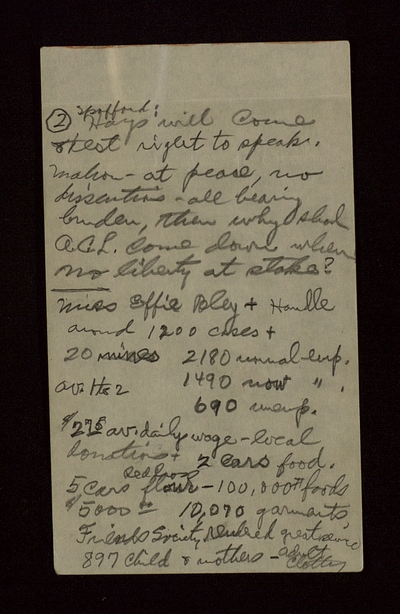 ② Spofford:
Hays will Come
test right to speak.
Mahon - at peace, no
dissentions - all bearing
burden, then why shd
A.C.L. come down when
no liberty at stake?
Miss Effie Bley + Handle
around 1200 cases +
20 mines 2180 normal-emp.
av. Hz 2 1490 now "
690 unemp.
$2.75 av. daily wage - local
donations + 2 Cars food.
Red Cross
5 cars flour - 100,000# foods
$5000 00 10,090 garments
Friends Society, rendered great service
897 child & mothers - adult
clothing